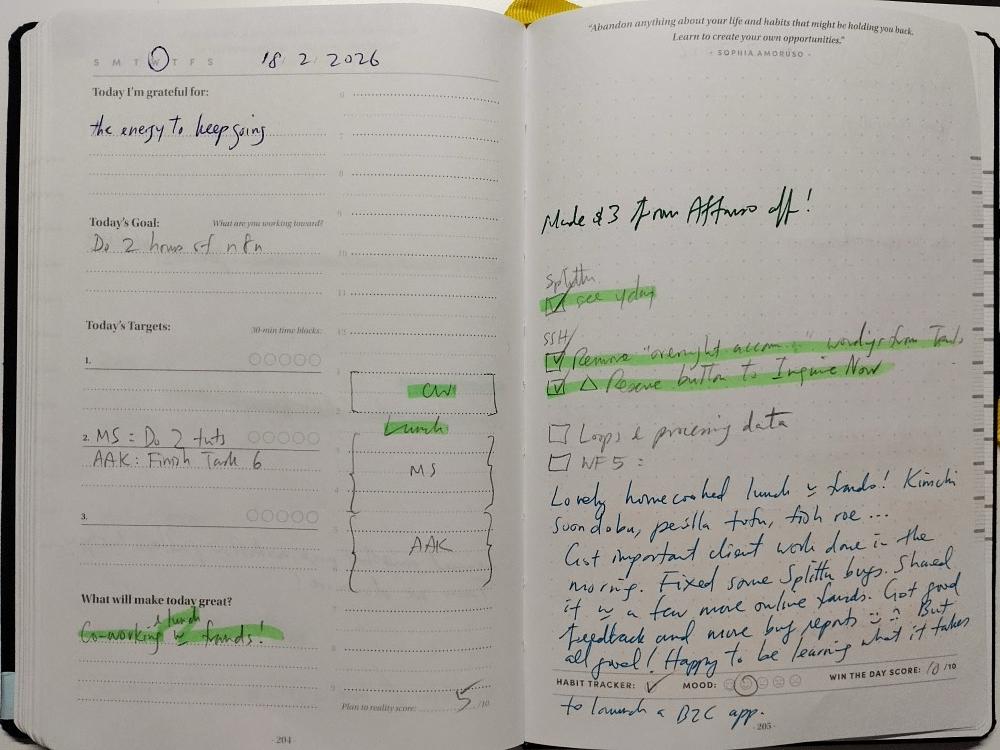 S M T W T F S 18 2 2026
Today I'm grateful for:
the energy to keep going
Today's Goal:
What are you working toward?
Do 2 hours of n8n
Today's Targets:
30-min time blocks:
1.
2. MS = Do 2 tuts
AAK: Finish Task 6
3.
What will make today great?
& lunch
Co-working w friends!
6
7
8
9
10
11
12
CW
Lunch
MS
AAK
7
8
9
Plan to reality score: 5 /10
- 204 -
"Abandon anything about your life and habits that might be holding you back.
Learn to create your own opportunities."
- SOPHIA AMORUSO -
Made $3 from off!
Splittn
see yday
SSH
Remove "overnight wordings from
△ Reserve button to Inquire Now
Loops & processing data
WF 5 :
Lovely homecooked lunch w friends! Kimchi
soondobu, perilla tofu, fish roe ...
Got important client work done in the
morning. Fixed some Splittn bugs. Shared
it w a few more online friends. Got good
feedback and more bug reports But
all good! Happy to be learning what it takes
HABIT TRACKER: MOOD: WIN THE DAY SCORE: 10 /10
to launch a B2C app.
- 205 -